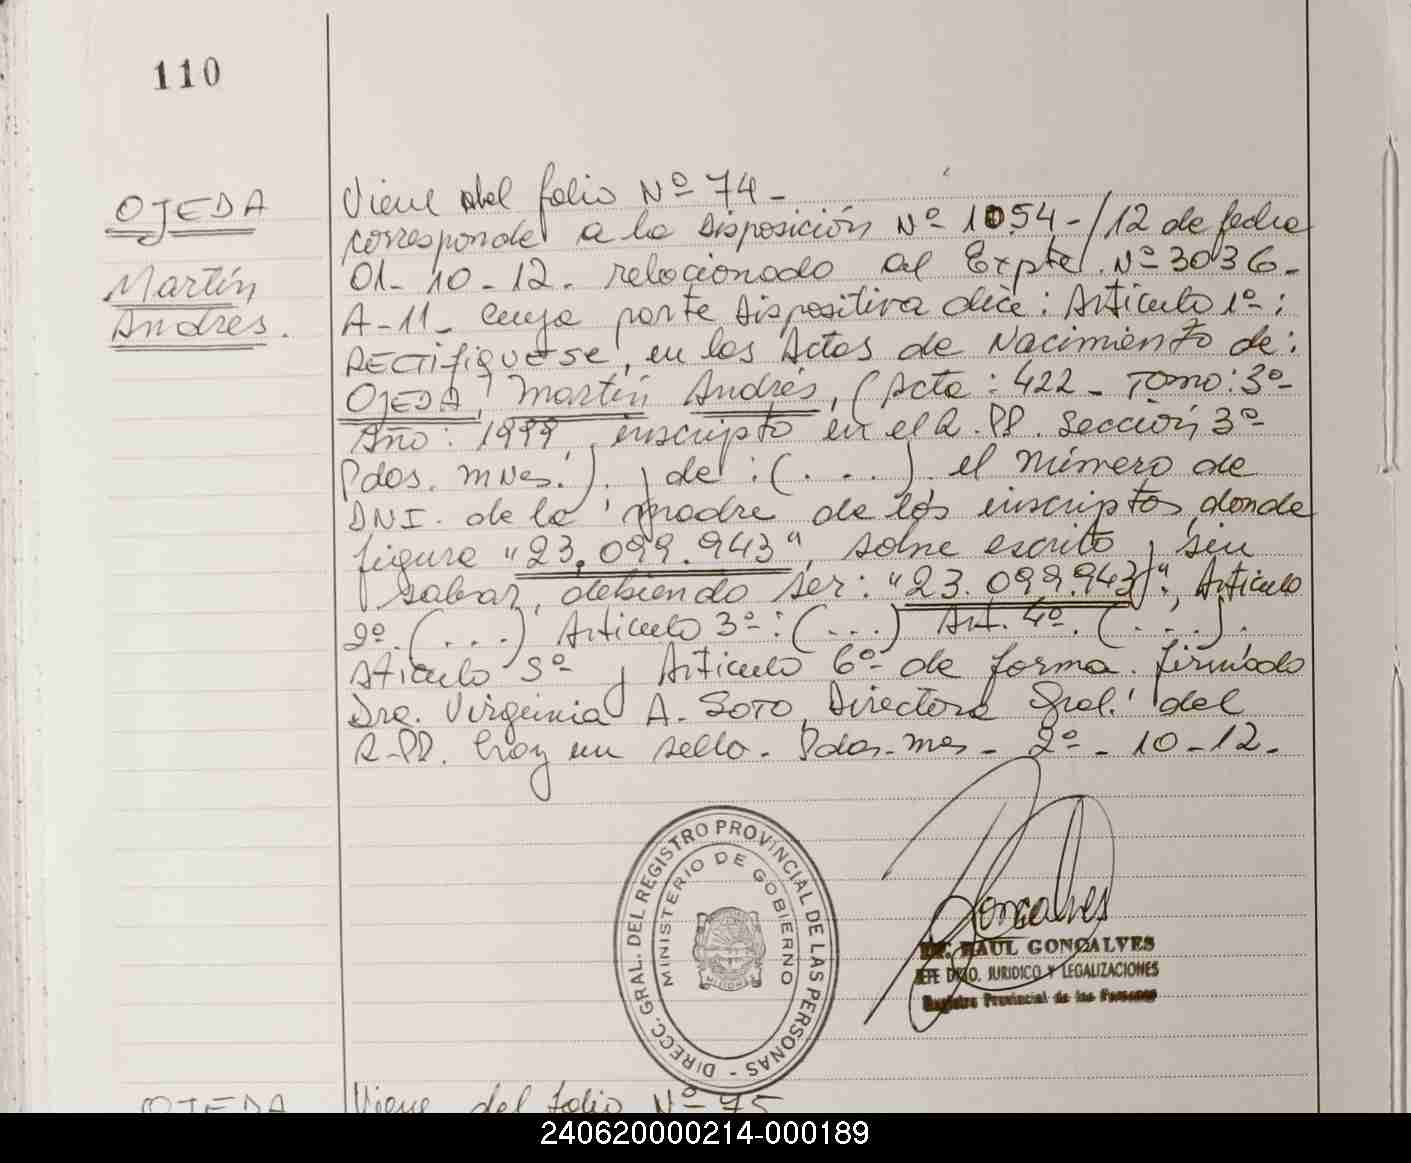 110
OJEDA
Martín
Andrés.
Viene del folio Nº 74_
corresponde a la Disposición Nº 1054-/12 de fecha
01_10_12. relacionado al Expte. Nº 3036_
A-11_ cuya parte Dispositiva dice: Artículo 1º:
RECTifiquese, en las Actas de Nacimiento de:
OJEDA, Martín Andrés, (Acta: 422_ Tomo: 3º_
Año: 1999, inscripto en el R.PP. Sección 3º
Pdas. mnes.). y de: (...). el Número de
DNI. de la madre de los inscriptos, donde
figura "23.099.943", sobre escrito, sin
salvar, debiendo ser: "23.099.943", Artículo
2º. (...) Artículo 3º: (...) Art. 4º. (...).
Atículo 5º y Artículo 6º de forma. firmado
Dra. Virginia A. SOTO, Directora Gral. del
R-PP. hay un sello. Pdas-mes_ 2º_10_12.
DIRECC. GRAL. DEL REGISTRO PROVINCIAL DE LAS PERSONAS -
MINISTERIO DE GOBIERNO
MISIONES
Goncalves
Dr. RAUL GONCALVES
JEFE DPTO. JURIDICO Y LEGALIZACIONES
Registro Provincial de las Personas
OJEDA
Viene del folio Nº 75
240620000214-000189